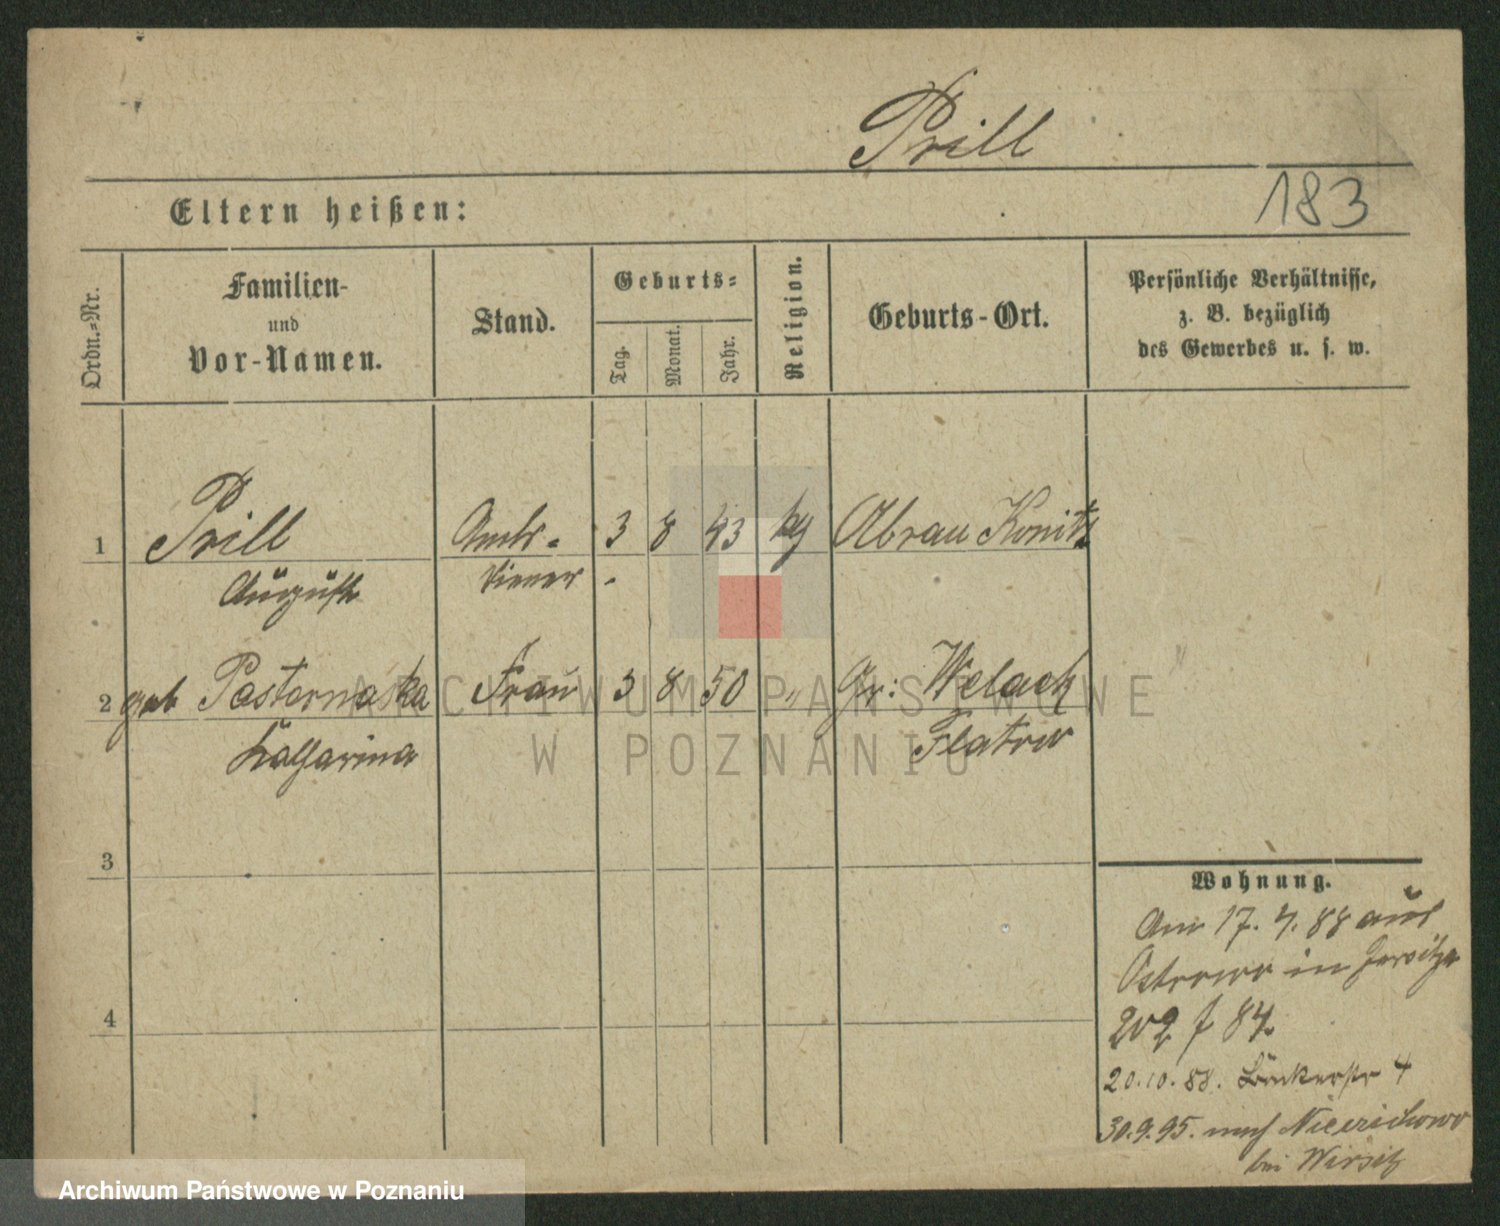 Prill
183
Eltern heißen:
Ordn.-Nr.
Familien-
und
Vor-Namen.
Stand.
Geburts-
Tag.
Monat.
Jahr.
Religion.
Geburts-Ort.
Persönliche Verhältnisse,
z. B. bezüglich
des Gewerbes u. s. w.
1 Prill Amts- 3 8 43 kg Abrau Konitz
August diener
2 geb Pasternaska Frau 3 8 50 " Gr: Welach
Katharina Flatow
3
4
Wohnung.
Am 17. 4. 88 aus
Ostrowo in Jersitz
202 f 84
20.10.88. 4
30.9.95. nach
bei Wirsitz
ARCHIWUM PAŃSTWOWE
W POZNANIU
Archiwum Państwowe w Poznaniu